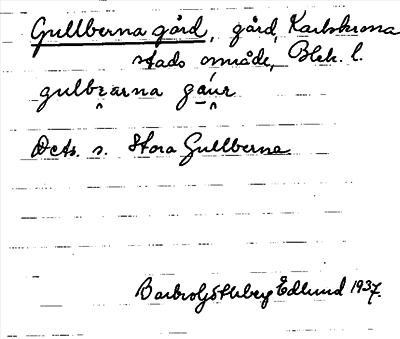 Gullberna gård, gård, Karlskrona
stads område, Blek. l.
gulbæarna gáur
Dets. s. Stora Gullberna
Barbro Götberg Edlund 1937.